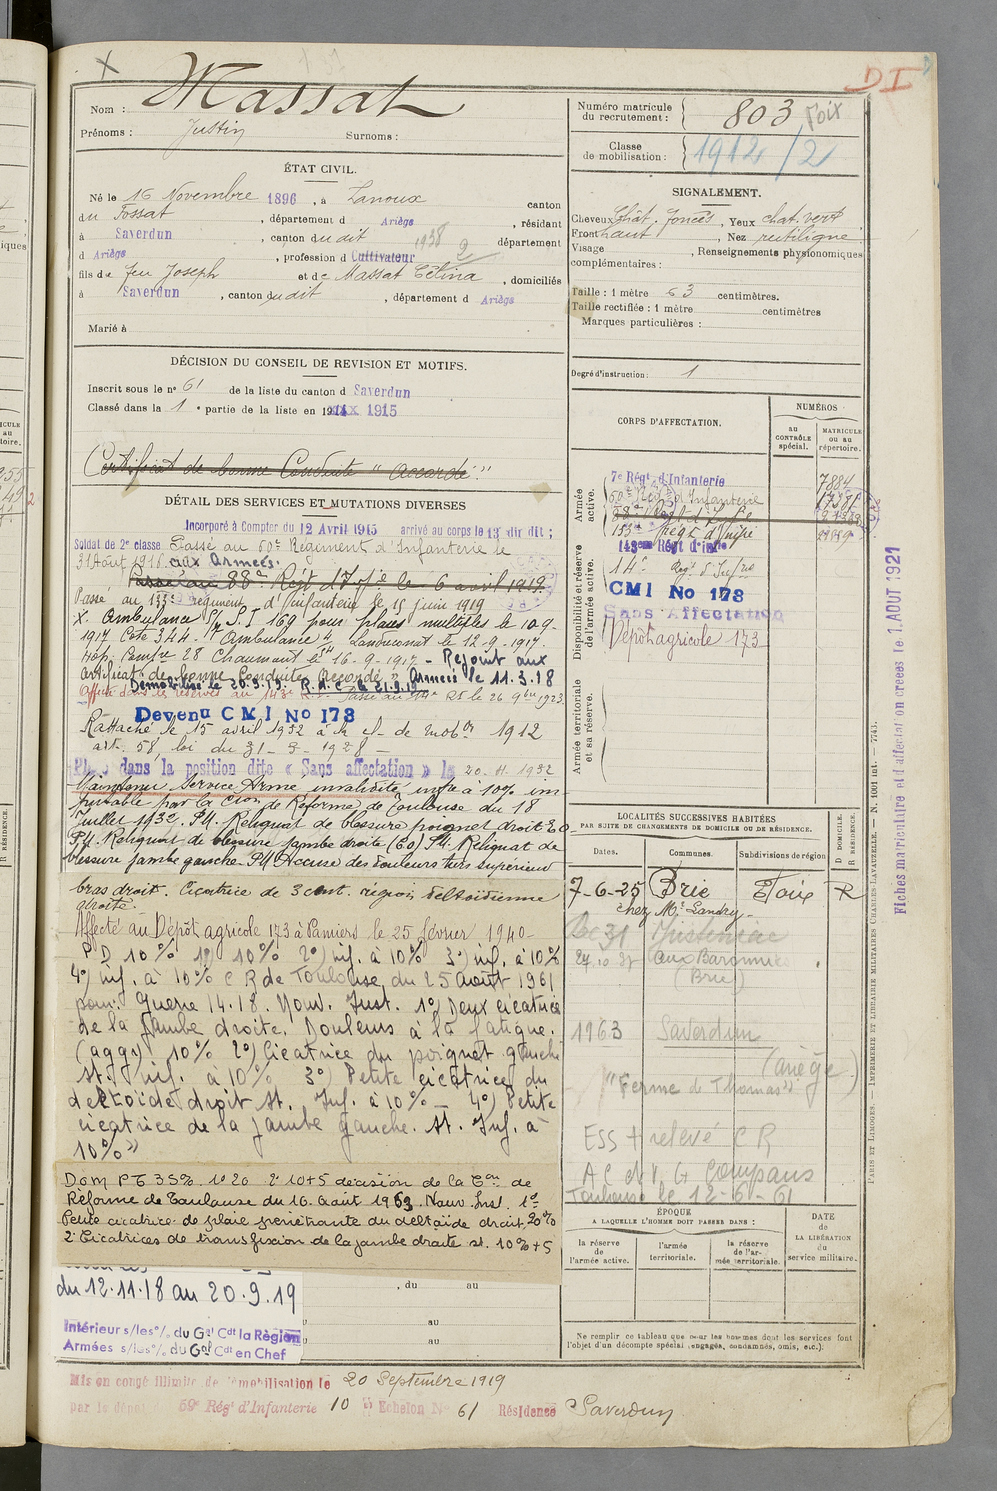 DI
Massat
Nom :
Prénoms : Justin Surnoms :
Numéro matricule
du recrutement : 803 Foix
Classe
de mobilisation : 1912/2
ÉTAT CIVIL.
Né le 16 Novembre 1896, à Lanoux canton
du Fossat, département d Ariège, résidant
à Saverdun, canton dudit 1938 département
d Ariège, profession d Cultivateur 2
fils de feu Joseph et de Massat Célina, domiciliés
à Saverdun, canton dudit, département d Ariège
Marié à
SIGNALEMENT.
Cheveux chât. foncés, Yeux chat. vert
Front haut, Nez rectiligne
Visage , Renseignements physionomiques
complémentaires :
Taille : 1 mètre 63 centimètres.
Taille rectifiée : 1 mètre centimètres
Marques particulières :
Degré d'instruction : 1
DÉCISION DU CONSEIL DE REVISION ET MOTIFS.
Inscrit sous le n° 61 de la liste du canton d Saverdun
Classé dans la 1e partie de la liste en 1915
Certificat de bonne Conduite "Accordé"
DÉTAIL DES SERVICES ET MUTATIONS DIVERSES
Incorporé à Compter du 12 Avril 1915 arrivé au corps le 13 dudit ;
Soldat de 2e classe Passé au 60e Régiment d'Infanterie le
31 Août 1916 aux Armées.
Passé au 88e Régt d'Infie le 6 avril 1919
Passé au 153e régiment d'infanterie le 15 juin 1919
X. Ambulance S.I 169 pour plaies multiples le 10.9.
1917 Cote 344. Ambulance 4 Landrecourt le 12-9-1917.
Hôp. Compre 28 Chaumont le 16-9-1917 - Rejoint aux
Armées le 11.3.18
Certificat de bonne Conduite Accordé
Démobilisé le 20.9.19 R.d.C le 21.9.19
Affecté dans la réserve au 143e Passé au 14e RI le 26 9bre 1923
Devenu CMI No 178
Rattaché le 15 avril 1932 à la cl. de mobon 1912
art. 58 loi du 31-3-1928 -
Placé dans la position dite « Sans affectation » le 20.4.1932
Maintenu Service Armé invalidité infre à 10% im-
putable par la Cion de Réforme de Toulouse du 18
Juillet 1932. PM. Reliquat de blessure poignet droit Eo
PM. Reliquat de blessure jambe droite (Eo) PM. Reliquat de
blessure jambe gauche. PM Accuse des douleurs tiers supérieur
bras droit. Cicatrice de 3 cent. région deltoïdienne
droite.
Affecté au Dépôt agricole 173 à Pamiers le 25 février 1940-
P D 10% 1°) 10% 2°) inf. à 10% 3°) inf. à 10%
4°) inf. à 10% C R de Toulouse du 25 août 1961
pour guerre 14.18. Nouv. Inst. 1°) Deux cicatrices
de la jambe droite. Douleurs à la fatigue.
(aggr) 10% 2°) Cicatrice du poignet gauche
st. inf. à 10% 3°) Petite cicatrice du
deltoïde droit st. Inf. à 10% - 4°) Petite
cicatrice de la jambe gauche. st. Inf. à
10%"
Dom PT 35% 1° 20 2° 10+5 décision de la Con de
Réforme de Toulouse du 16 Août 1963. Nouv. Inst. 1°
Petite cicatrice de plaie pénétrante du deltoïde droit 20%
2° Cicatrices de transfixion de la jambe droite st. 10%+5
, du au
du 12.11.18 au 20.9.19
au
au
Intérieur s/les o/. du Gal Cdt la Région
Armées s/les o/. du Gal Cdt en Chef
Mis en congé illimité de démobilisation le 20 Septembre 1919
par le dépôt du 59e Régt d'Infanterie 10e Echelon N° 61 Résidence Saverdun
CORPS D'AFFECTATION.
NUMÉROS
au
CONTRÔLE
spécial.
MATRICULE
ou au
répertoire.
Armée
active.
7e Régt d'Infanterie 7884
60e Régt d'Infanterie
88e Régt d'Infie
153e Régt d'Infie
Disponibilité et réserve
de l'armée active.
143eme Régt d'Infie
14e Régt d'Infrie
CMI No 178
Sans Affectation
Dépôt agricole 173
Armée territoriale
et sa réserve.
LOCALITÉS SUCCESSIVES HABITÉES
PAR SUITE DE CHANGEMENTS DE DOMICILE OU DE RÉSIDENCE.
Dates. Communes. Subdivisions de région
D DOMICILE.
R RÉSIDENCE.
7-6-25 Brie Foix R
chez Mr Landry
Justiniac
24.10.37 aux Baronnies
(Brie)
1963 Saverdun
(Ariège)
"Ferme de Thomas"
ESS + relevé C R
A C et V. G Compans
Toulouse le 12-6-61
ÉPOQUE
A LAQUELLE L'HOMME DOIT PASSER DANS :
la réserve
de
l'armée active.
l'armée
territoriale.
la réserve
de l'ar-
mée territoriale.
DATE
de
LA LIBÉRATION
du
service militaire.
Ne remplir ce tableau que pour les hommes dont les services font
l'objet d'un décompte spécial (engagés, condamnés, omis, etc.).
PARIS ET LIMOGES. — IMPRIMERIE ET LIBRAIRIE MILITAIRES CHARLES-LAVAUZELLE. — N. 1001 int. — 7743.
Fiches matriculaire et d'affectation créées le 1 AOUT 1921